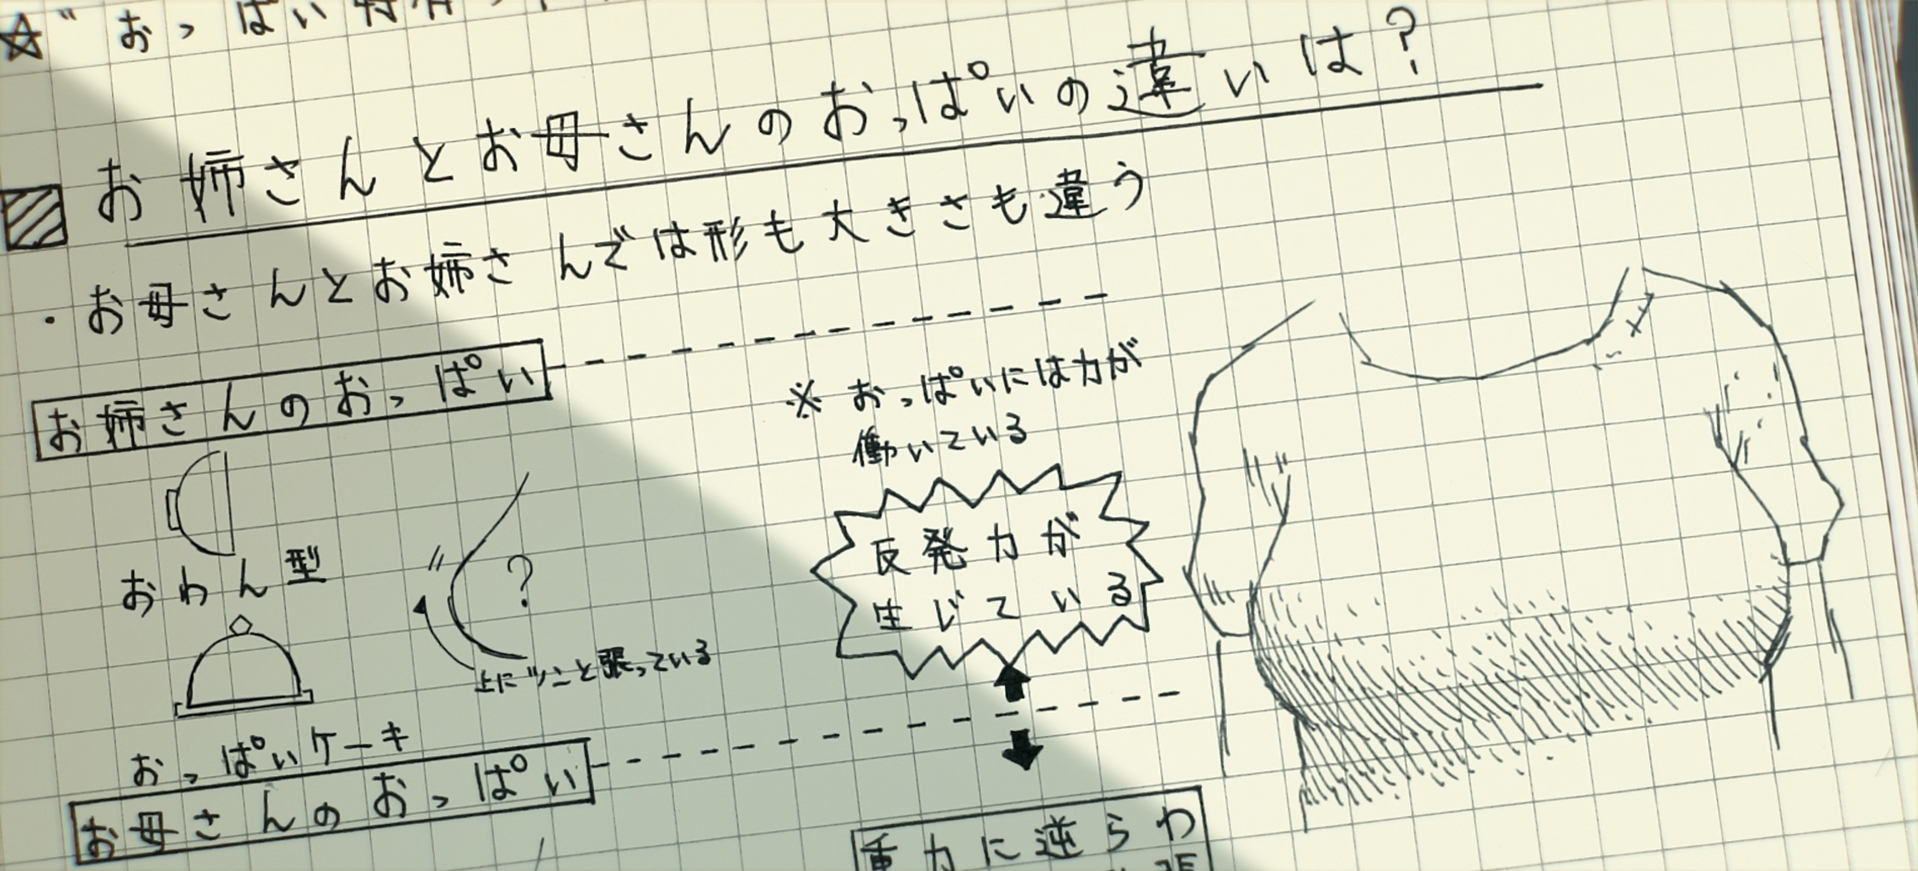 ☆“おっぱい
お姉さんとお母さんのおっぱいの違いは？
・お母さんとお姉さんでは形も大きさも違う
お姉さんのおっぱい
おわん型
?
上にツンと張っている
おっぱいケーキ
※おっぱいには力が
働いている
反発力が
生じている
お母さんのおっぱい
重力に逆らわ